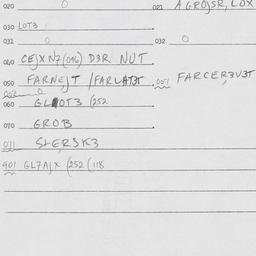 020 0 021 AGROJSR, LOX
030 LOT3
031 0 032 0
040 CEJXN7(096) D3R NUT
050 FARNEJT /FARLAT3T 057 FARCER3V3T
0
060 GLOT3 (252
070 GROB
071 SLERSK3
901 GL7AJX (252 (118